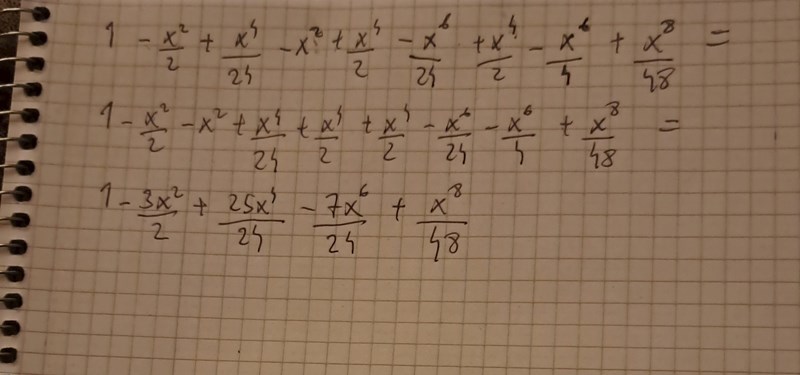 1 - x²/2 + x⁴/24 - x² + x⁴/2 - x⁶/24 + x⁴/2 - x⁶/4 + x⁸/48 =
1 - x²/2 - x² + x⁴/24 + x⁴/2 + x⁴/2 - x⁶/24 - x⁶/4 + x⁸/48 =
1 - 3x²/2 + 25x⁴/24 - 7x⁶/24 + x⁸/48